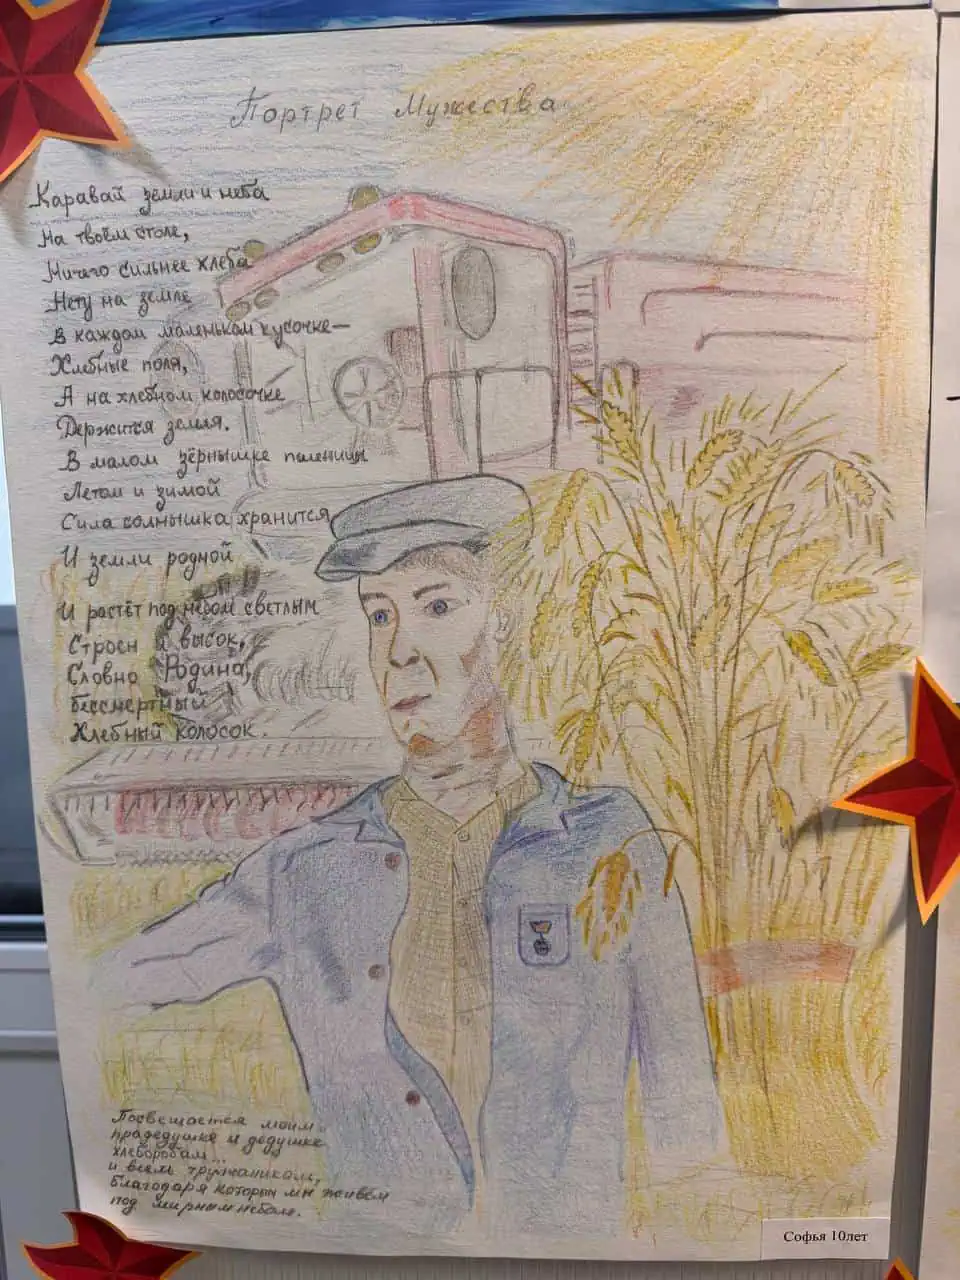 Портрет Мужества
Каравай земли и неба
На твоём столе,
Ничего сильнее хлеба
Нету на земле
В каждом маленьком кусочке—
Хлебные поля,
А на хлебном колосочке
Держится земля.
В малом зёрнышке пшеницы
Летом и зимой
Сила солнышка хранится
И земли родной
И растёт под небом светлым
Строен и высок,
Словно Родина,
бессмертный
Хлебный колосок.
Посвещается моим
прадедушке и дедушке
хлеборобам...
и всем труженикам,
благодаря которым мы живём
под мирным небом.
Софья 10лет